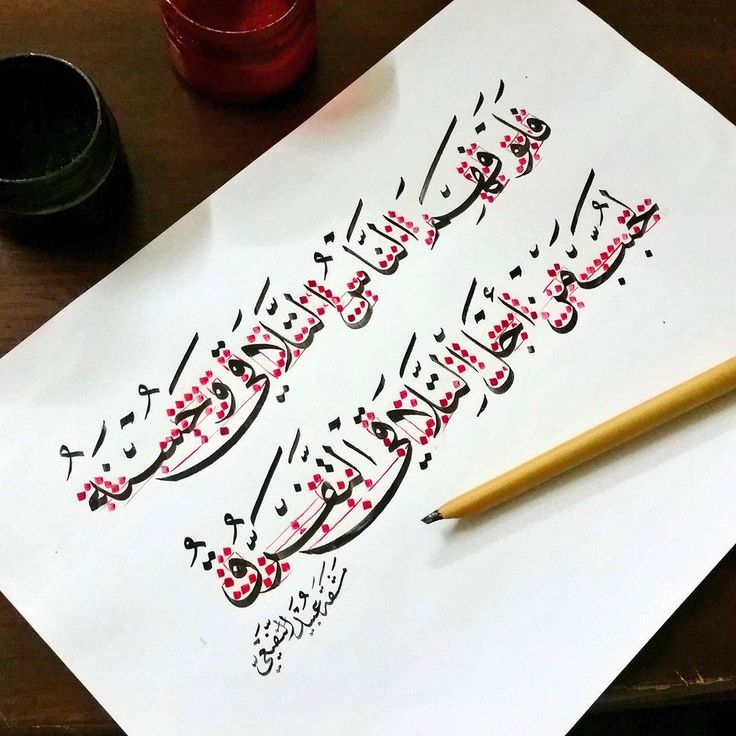 فَلَو فَهِمَ النَّاسُ التَّلَاقِي وَحُسنَهُ
لَحُبِّبَ مِن أَجلِ التَّلَاقِي التَّفَرُّقُ
مشقه عبيد النفيعي